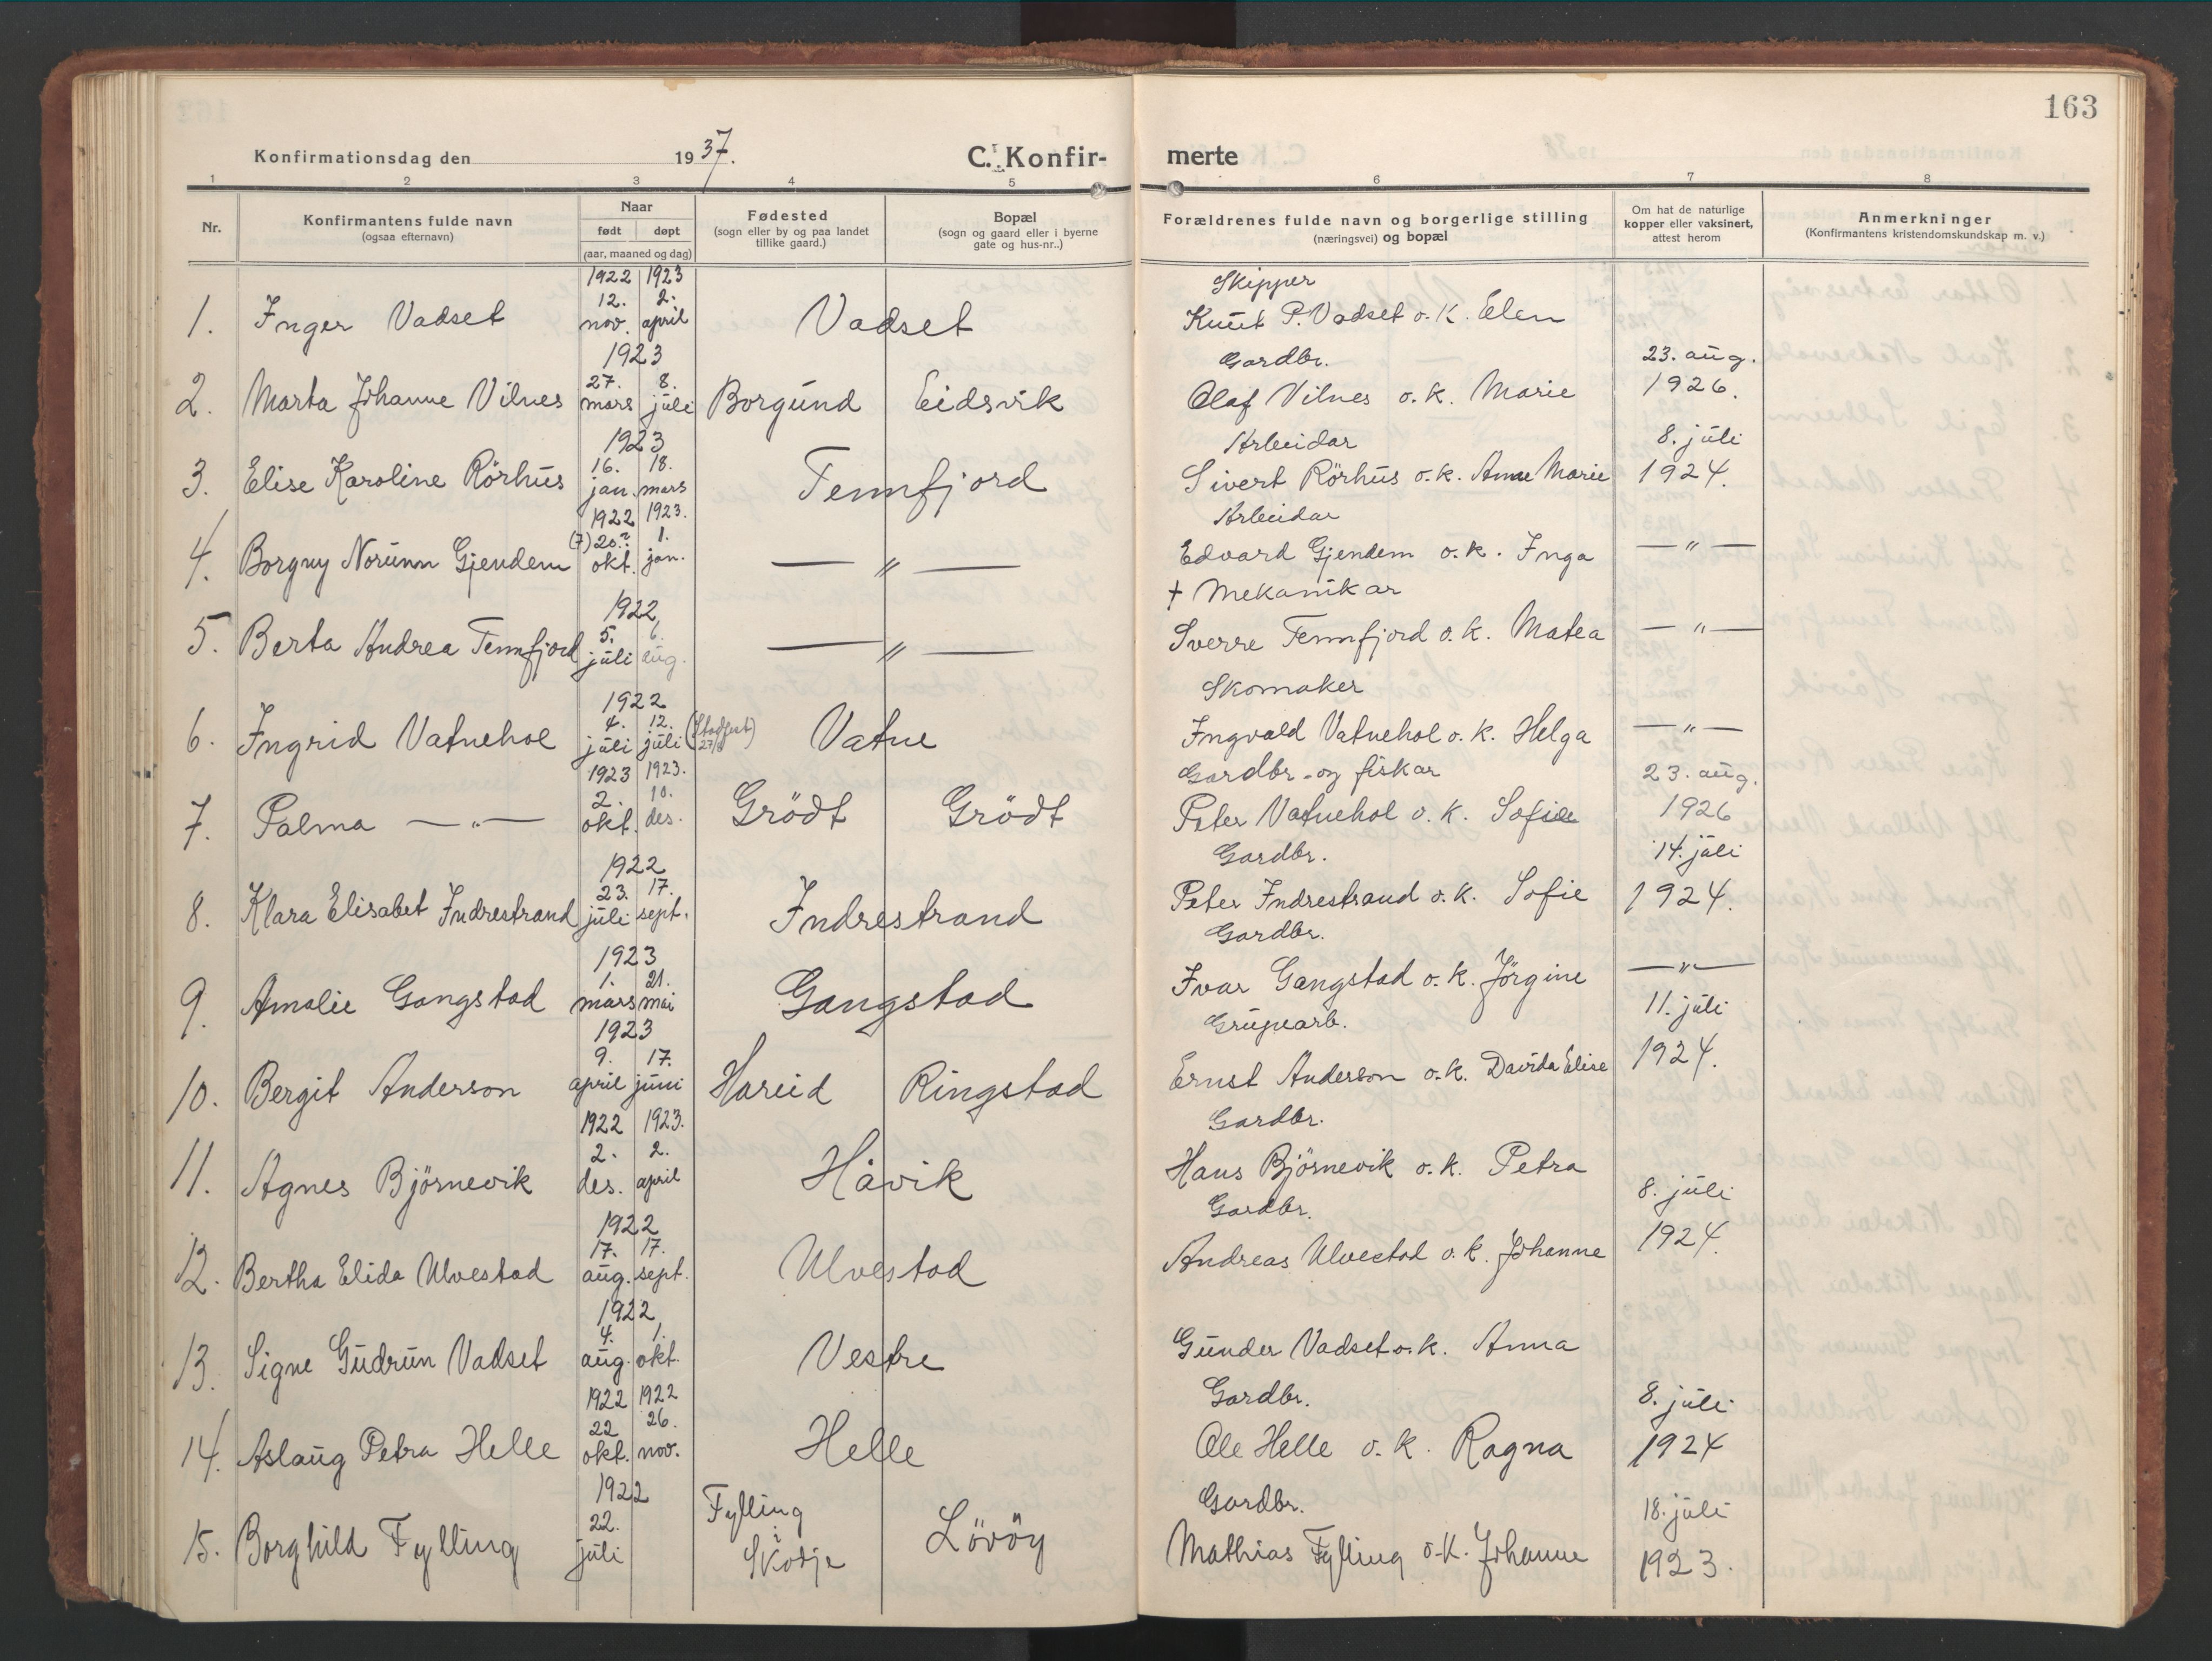 163
Konfirmationsdag den 1937.
C. Konfir-
merte
1 2 3 4 5 6 7 8
Nr.
Konfirmantens fulde navn
(ogsaa efternavn)
Naar
født døpt
(aar, maaned og dag)
Fødested
(sogn eller by og paa landet
tillike gaard.)
Bopæl
(sogn og gaard eller i byerne
gate og hus-nr..)
Forældrenes fulde navn og borgerlige stilling
(næringsvei) og bopæl
Om hat de naturlige
kopper eller vaksinert,
attest herom
Anmerkninger
(Konfirmantens kristendomskundskap m. v.)
1922 1923
12. 2.
nov. april
1. Inger Vadset
Vadset
Skipper
Knut P. Vadset o. k. Elen
1923
27. 8.
mars juli
2. Marta Johanne Vilnes
Borgund Eidsvik
Gardbr.
Olaf Vilnes o. k. Marie
23. aug.
1926.
1923
16. 18.
jan. mars
3. Elise Karoline Rörhus
Tennfjord
Arbeidar
Sivert Rörhus o. k. Anne Marie
8. juli
1924.
1922 1923.
(7) 20.? 1.
okt. jan.
4. Borgny Norunn Gjendem
— " —
Arbeidar
Edvard Gjendem o. k. Inga
— " —
1922
5. 6.
juli aug.
5. Berta Andrea Tennfjord
— " —
+ Mekanikar
Sverre Tennfjord o. k. Matea
— " —
1922
4. 12.
juli juli
6. Ingrid Vatnehol
(Stadfest
27/8)
Vatne
Skomaker
Ingvald Vatnehol o. k. Helga
— " —
1923 1923.
2. 10.
okt. des.
7. Palma — " —
Grödt Grödt
Gardbr. og fiskar
Peter Vatnehol o. k. Sofie
23. aug.
1926
1922
23. 17.
juli sept.
8. Klara Elisabet Indrestrand
Indrestrand
Gardbr.
Peter Indrestrand o. k. Sofie
14. juli
1924.
1923
1. 21.
mars mai
9. Amalie Gangstad
Gangstad
Gardbr.
Ivar Gangstad o. k. Jörgine
— " —
1923
9. 17.
april juni
10. Bergit Anderson
Hareid Ringstad
Gruvearb.
Ernst Anderson o. k. Davida Elise
11. juli
1924.
1922 1923.
2. 2.
des. april
11. Agnes Björnevik
Håvik
Gardbr.
Hans Björnevik o. k. Petra
1922
17. 17.
aug. sept.
12. Bertha Elida Ulvestad
Ulvestad
Gardbr.
Andreas Ulvestad o. k. Johanne
8. juli
1924.
1922
4. 1.
aug. okt.
13. Signe Gudrun Vadset
Vestre
Gunder Vadset o. k. Anna
1922 1922
22 26.
okt. nov.
14. Aslaug Petra Helle
Helle
Gardbr.
Ole Helle o. k. Ragna
8. juli
1924
1922
22.
juli
15. Borghild Fylling
Fylling
i
Skodje
Lövöy
Gardbr.
Mathias Fylling o. k. Johanne
18. juli
1923.